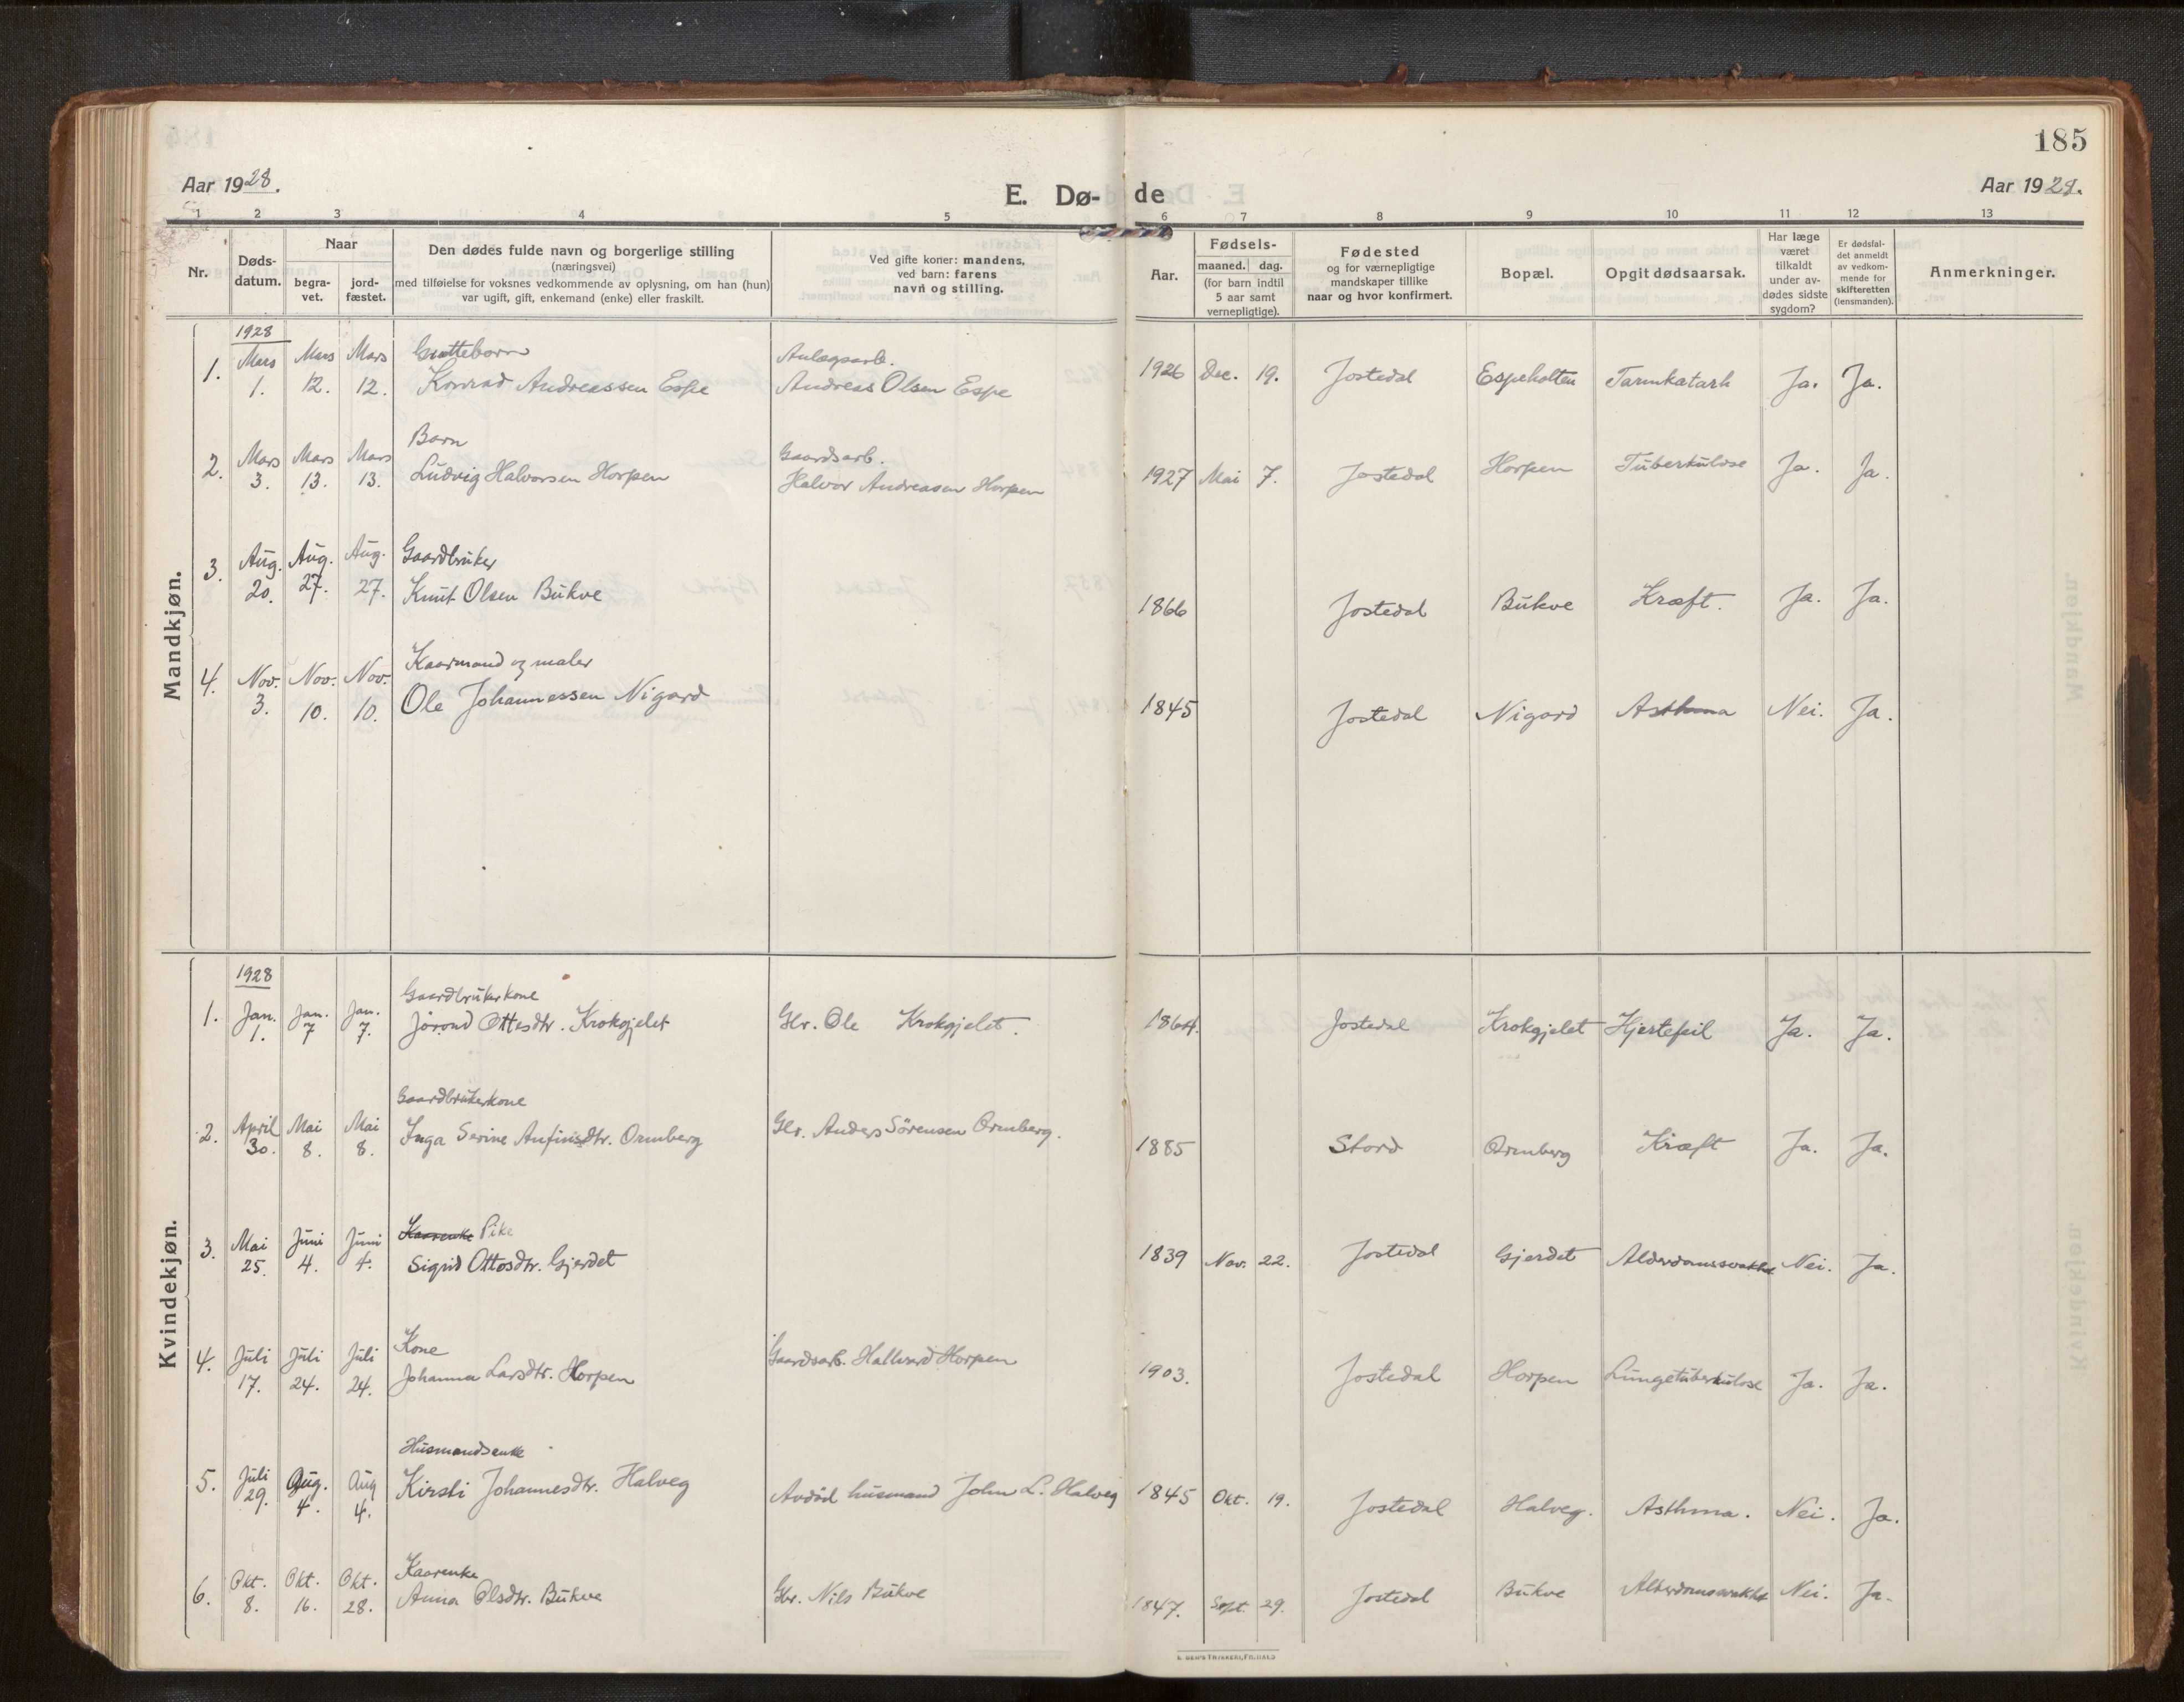 185
Aar 1928.
E. Dø- de
Aar 1928.
1 2 3 4 5 6 7 8 9 10 11 12 13
Nr.
Døds-
datum.
Naar
begra-
vet.
jord-
fæstet.
Den dødes fulde navn og borgerlige stilling
(næringsvei)
med tilføielse for voksnes vedkommende av oplysning, om han (hun)
var ugift, gift, enkemand (enke) eller fraskilt.
Ved gifte koner: mandens,
ved barn: farens
navn og stilling.
Aar.
Fødsels-
maaned. dag.
(for barn indtil
5 aar samt
vernepligtige).
Fødested
og for værnepligtige
mandskaper tillike
naar og hvor konfirmert.
Bopæl.
Opgit dødsaarsak.
Har læge
været
tilkaldt
under av-
dødes sidste
sygdom?
Er dødsfal-
det anmeldt
av vedkom-
mende for
skifteretten
(lensmanden).
Anmerkninger.
Mandkjøn.
1928
Gutteborn Anlægsarb.
1. Mars 1. Mars 12. Mars 12. Konrad Andreassen Espe Andreas Olsen Espe 1926 Dec. 19. Jostedal Espeholten Tarmkatarh Ja. Ja.
Barn Gaardsarb.
2. Mars 3. Mars 13. Mars 13. Ludvig Halvorsen Horpen Halvor Andreasen Horpen 1927 Mai 7. Jostedal Horpen Tuberkulose Ja. Ja.
Gaardbruker
3. Aug. 20. Aug. 27. Aug. 27. Knut Olsen Bukve 1866 Jostedal Bukve Kræft. Ja. Ja.
Kaarmand og maler
4. Nov. 3. Nov. 10. Nov. 10. Ole Johannessen Nigard 1845 Jostedal Nigard Asthma Nei. Ja.
Kvindekjøn.
1928
Gaardbrukerkone
1. Jan. 1. Jan. 7 Jan. 7. Jorond Ottesdtr. Krokgjelet Gbr. Ole Krokgjelet. 1864. Jostedal Krokgjelet Hjertefeil Ja. Ja.
Gaardbrukerkone
2. April 30. Mai 8. Mai 8. Inga Serine Anfinsdtr. Ormberg Gbr. Anders Sörensen Ormberg. 1885 Stord Ormberg Kræft Ja. Ja.
Kaarenke Pike
3. Mai 25. Juni 4. Juni 4. Sigrid Ottosdtr. Gjerdet 1839 Nov. 22. Jostedal Gjerdet Alderdomssvakhet Nei. Ja.
Kone
4. Juli 17. Juli 24. Juli 24. Johanna Larsdtr. Horpen Gaardsarb. Hallvard Horpen 1903. Jostedal Horpen Lungetuberkulose Ja. Ja.
Husmandsenke
5. Juli 29. Aug. 4. Aug 4. Kirsti Johannesdtr. Halveg Avdöd husmand John L. Halveg 1845 Okt. 19. Jostedal Halveg. Asthma. Nei. Ja.
Kaarenke
6. Okt. 8. Okt. 16. Okt. 28. Anna Olsdtr. Bukve Gbr. Nils Bukve 1847. Sept. 29. Jostedal Bukve Alderdomssvakhet Nei. Ja.